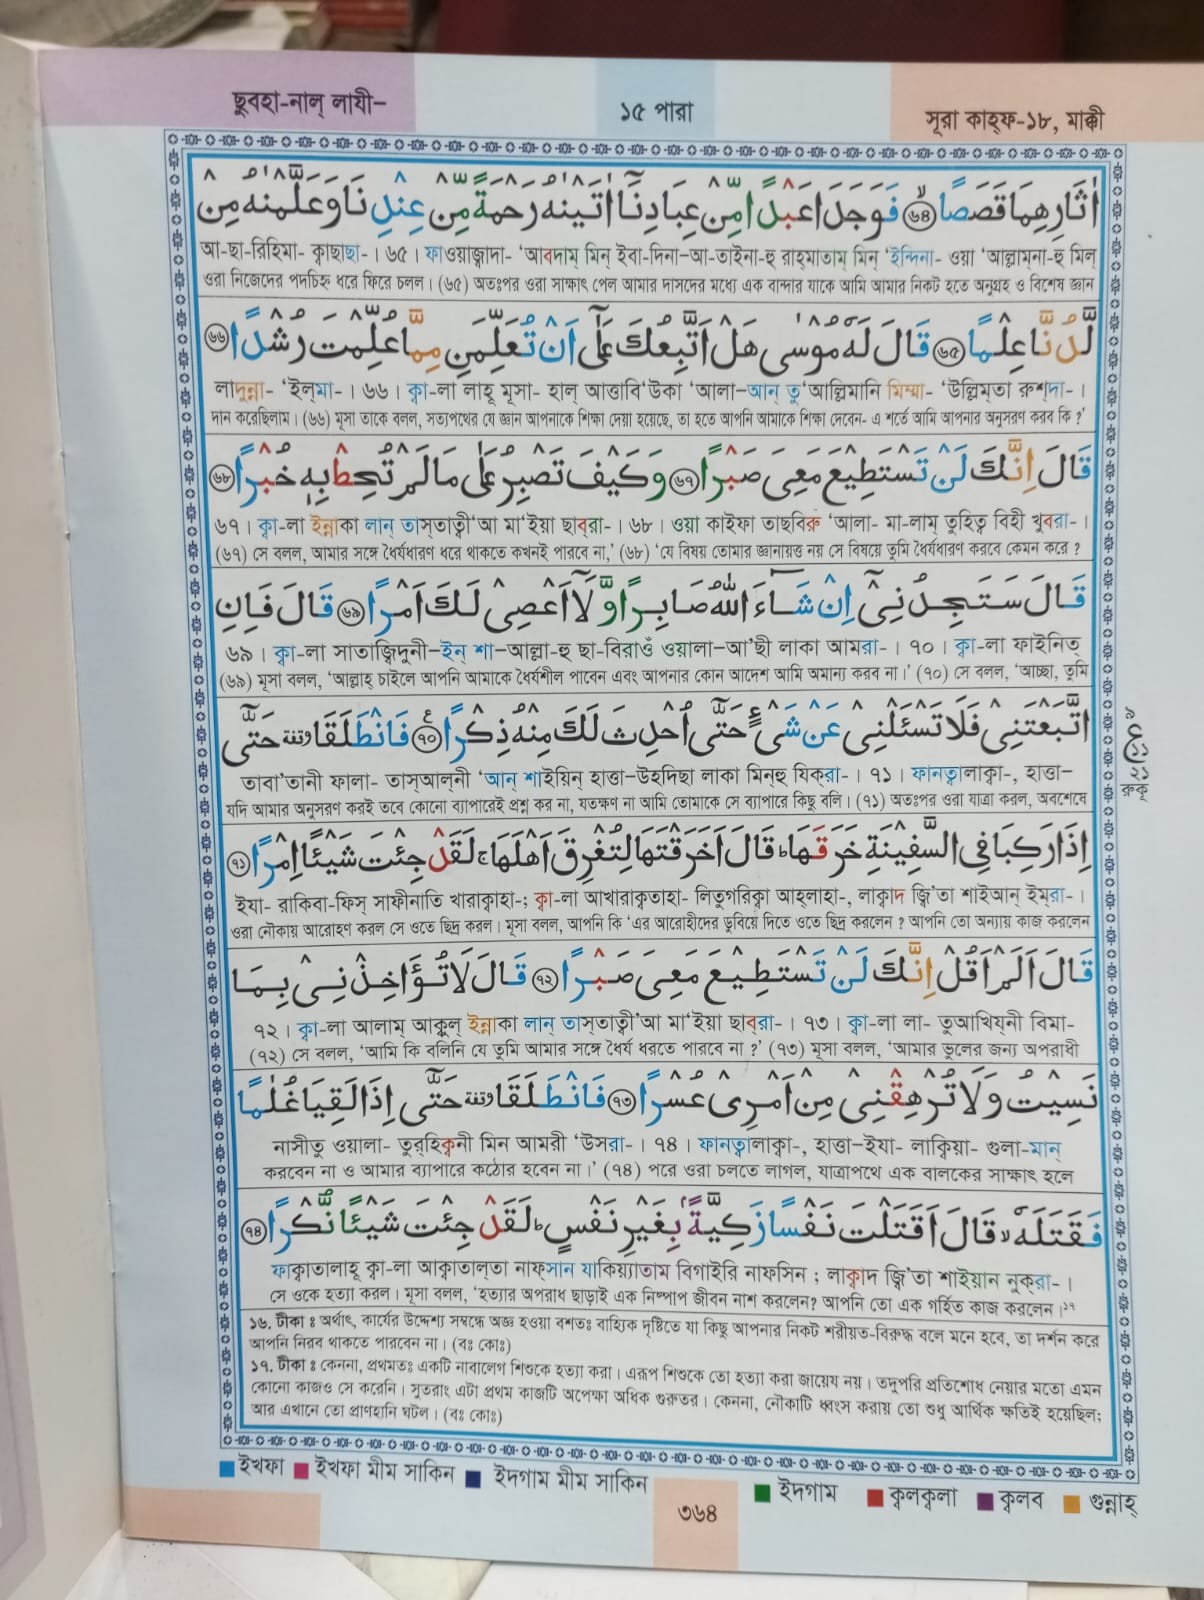 ছুবহা-নাল্ লাযী-
১৫ পারা
সূরা কাহ্ফ-১৮, মাক্কী
اٰثَارِهِمَا قَصَصًا ۝۶۴ فَوَجَدَا عَبْدًا مِّنْ عِبَادِنَآ اٰتَيْنٰهُ رَحْمَةً مِّنْ عِنْدِنَا وَعَلَّمْنٰهُ مِنْ
আ-ছা-রিহিমা- ক্বাছাছা-। ৬৫। ফাওয়াজ্বাদা- 'আবদাম্ মিন্ ইবা-দিনা–আ-তাইনা-হু রাহ্মাতাম্ মিন্ 'ইন্দিনা- ওয়া 'আল্লাম্না-হু মিল্
ওরা নিজেদের পদচিহ্ন ধরে ফিরে চলল। (৬৫) অতঃপর ওরা সাক্ষাৎ পেল আমার দাসদের মধ্যে এক বান্দার যাকে আমি আমার নিকট হতে অনুগ্রহ ও বিশেষ জ্ঞান
لَّدُنَّا عِلْمًا ۝۶۵ قَالَ لَهٗ مُوْسٰى هَلْ اَتَّبِعُكَ عَلٰٓى اَنْ تُعَلِّمَنِ مِمَّا عُلِّمْتَ رُشْدًا ۝۶۶
লাদুন্না- 'ইল্মা-। ৬৬। ক্বা-লা লাহূ মূসা- হাল্ আত্তাবি'উকা 'আলা–আন্ তু'আল্লিমানি মিম্মা- 'উল্লিম্তা রুশ্দা-।
দান করেছিলাম। (৬৬) মূসা তাকে বলল, সত্যপথের যে জ্ঞান আপনাকে শিক্ষা দেয়া হয়েছে, তা হতে আপনি আমাকে শিক্ষা দেবেন- এ শর্তে আমি আপনার অনুসরণ করব কি?'
قَالَ اِنَّكَ لَنْ تَسْتَطِيْعَ مَعِىَ صَبْرًا ۝۶۷ وَكَيْفَ تَصْبِرُ عَلٰى مَا لَمْ تُحِطْ بِهٖ خُبْرًا ۝۶۸
৬৭। ক্বা-লা ইন্নাকা লান্ তাস্তাত্বী'আ মা'ইয়া ছাব্‌রা-। ৬৮। ওয়া কাইফা তাছবিরু 'আলা- মা-লাম্ তুহিত্ব্ বিহী খুব্‌রা-।
(৬৭) সে বলল, আমার সঙ্গে ধৈর্যধারণ ধরে থাকতে কখনই পারবে না,' (৬৮) 'যে বিষয় তোমার জ্ঞানায়ত্ত নয় সে বিষয়ে তুমি ধৈর্যধারণ করবে কেমন করে ?
قَالَ سَتَجِدُنِىْٓ اِنْ شَآءَ اللّٰهُ صَابِرًا وَّلَآ اَعْصِىْ لَكَ اَمْرًا ۝۶۹ قَالَ فَاِنِ
৬৯। ক্বা-লা সাতাজ্বিদুনী–ইন্ শা–আল্লা-হু ছা-বিরাওঁ ওয়ালা–আ'ছী লাকা আমরা-। ৭০। ক্বা-লা ফাইনিত্
(৬৯) মূসা বলল, 'আল্লাহ্ চাইলে আপনি আমাকে ধৈর্যশীল পাবেন এবং আপনার কোন আদেশ আমি অমান্য করব না।' (৭০) সে বলল, 'আচ্ছা, তুমি
اتَّبَعْتَنِىْ فَلَا تَسْئَلْنِىْ عَنْ شَىْءٍ حَتّٰٓى اُحْدِثَ لَكَ مِنْهُ ذِكْرًا ۝۷۰ فَانْطَلَقَا وقفة حَتّٰٓى
তাবা'তানী ফালা- তাস্আল্নী 'আন্ শাইয়িন্ হাত্তা–উহদিছা লাকা মিন্হু যিক্‌রা-। ৭১। ফান্‌ত্বালাক্বা-, হাত্তা–
যদি আমার অনুসরণ করই তবে কোনো ব্যাপারেই প্রশ্ন কর না, যতক্ষণ না আমি তোমাকে সে ব্যাপারে কিছু বলি। (৭১) অতঃপর ওরা যাত্রা করল, অবশেষে
اِذَا رَكِبَا فِى السَّفِيْنَةِ خَرَقَهَا ؕ قَالَ اَخَرَقْتَهَا لِتُغْرِقَ اَهْلَهَا ۚ لَقَدْ جِئْتَ شَيْـًٔا اِمْرًا ۝۷۱
ইযা- রাকিবা-ফিস্ সাফীনাতি খারাক্বাহা-; ক্বা-লা আখারাক্বতাহা- লিতুগরিক্বা আহ্লাহা-, লাক্বাদ জ্বি'তা শাইআন্ ইম্‌রা-।
ওরা নৌকায় আরোহণ করল সে ওতে ছিদ্র করল। মূসা বলল, আপনি কি 'এর আরোহীদের ডুবিয়ে দিতে ওতে ছিদ্র করলেন? আপনি তো অন্যায় কাজ করলেন
قَالَ اَلَمْ اَقُلْ اِنَّكَ لَنْ تَسْتَطِيْعَ مَعِىَ صَبْرًا ۝۷۲ قَالَ لَا تُؤَاخِذْنِىْ بِمَا
৭২। ক্বা-লা আলাম্ আক্বুল্ ইন্নাকা লান্ তাস্তাত্বী'আ মা'ইয়া ছাব্‌রা-। ৭৩। ক্বা-লা লা- তুআখিয্‌নী বিমা-
(৭২) সে বলল, 'আমি কি বলিনি যে তুমি আমার সঙ্গে ধৈর্য ধরতে পারবে না?' (৭৩) মূসা বলল, 'আমার ভুলের জন্য অপরাধী
نَسِيْتُ وَلَا تُرْهِقْنِىْ مِنْ اَمْرِىْ عُسْرًا ۝۷۳ فَانْطَلَقَا وقفة حَتّٰٓى اِذَا لَقِيَا غُلٰمًا
নাসীতু ওয়ালা- তুর্‌হিক্বনী মিন আমরী 'উসরা-। ৭৪। ফান্‌ত্বালাক্বা-, হাত্তা–ইযা- লাক্বিয়া- গুলা-মান্
করবেন না ও আমার ব্যাপারে কঠোর হবেন না।' (৭৪) পরে ওরা চলতে লাগল, যাত্রাপথে এক বালকের সাক্ষাৎ হলে
فَقَتَلَهٗ ۙ قَالَ اَقَتَلْتَ نَفْسًا زَكِيَّةًۢ بِغَيْرِ نَفْسٍ ؕ لَقَدْ جِئْتَ شَيْـًٔا نُّكْرًا ۝۷۴
ফাক্বাতালাহূ ক্বা-লা আক্বাতাল্তা নাফ্সান যাকিয়্যাতাম বিগাইরি নাফসিন; লাক্বাদ জ্বি'তা শাইয়ান নুক্‌রা-।
সে ওকে হত্যা করল। মূসা বলল, 'হত্যার অপরাধ ছাড়াই এক নিষ্পাপ জীবন নাশ করলেন? আপনি তো এক গর্হিত কাজ করলেন।১৭
১৬. টীকা ঃ অর্থাৎ, কার্যের উদ্দেশ্য সম্বন্ধে অজ্ঞ হওয়া বশতঃ বাহ্যিক দৃষ্টিতে যা কিছু আপনার নিকট শরীয়ত-বিরুদ্ধ বলে মনে হবে, তা দর্শন করে
আপনি নিরব থাকতে পারবেন না। (বঃ কোঃ)
১৭. টীকা ঃ কেননা, প্রথমতঃ একটি নাবালেগ শিশুকে হত্যা করা। এরূপ শিশুকে তো হত্যা করা জায়েয নয়। তদুপরি প্রতিশোধ নেয়ার মতো এমন
কোনো কাজও সে করেনি। সুতরাং এটা প্রথম কাজটি অপেক্ষা অধিক গুরুতর। কেননা, নৌকাটি ধ্বংস করায় তো শুধু আর্থিক ক্ষতিই হয়েছিল;
আর এখানে তো প্রাণহানি ঘটল। (বঃ কোঃ)
ইখফা ইখফা মীম সাকিন ইদগাম মীম সাকিন ইদগাম ক্বলক্বলা ক্বলব গুন্নাহ্
৩৬৪